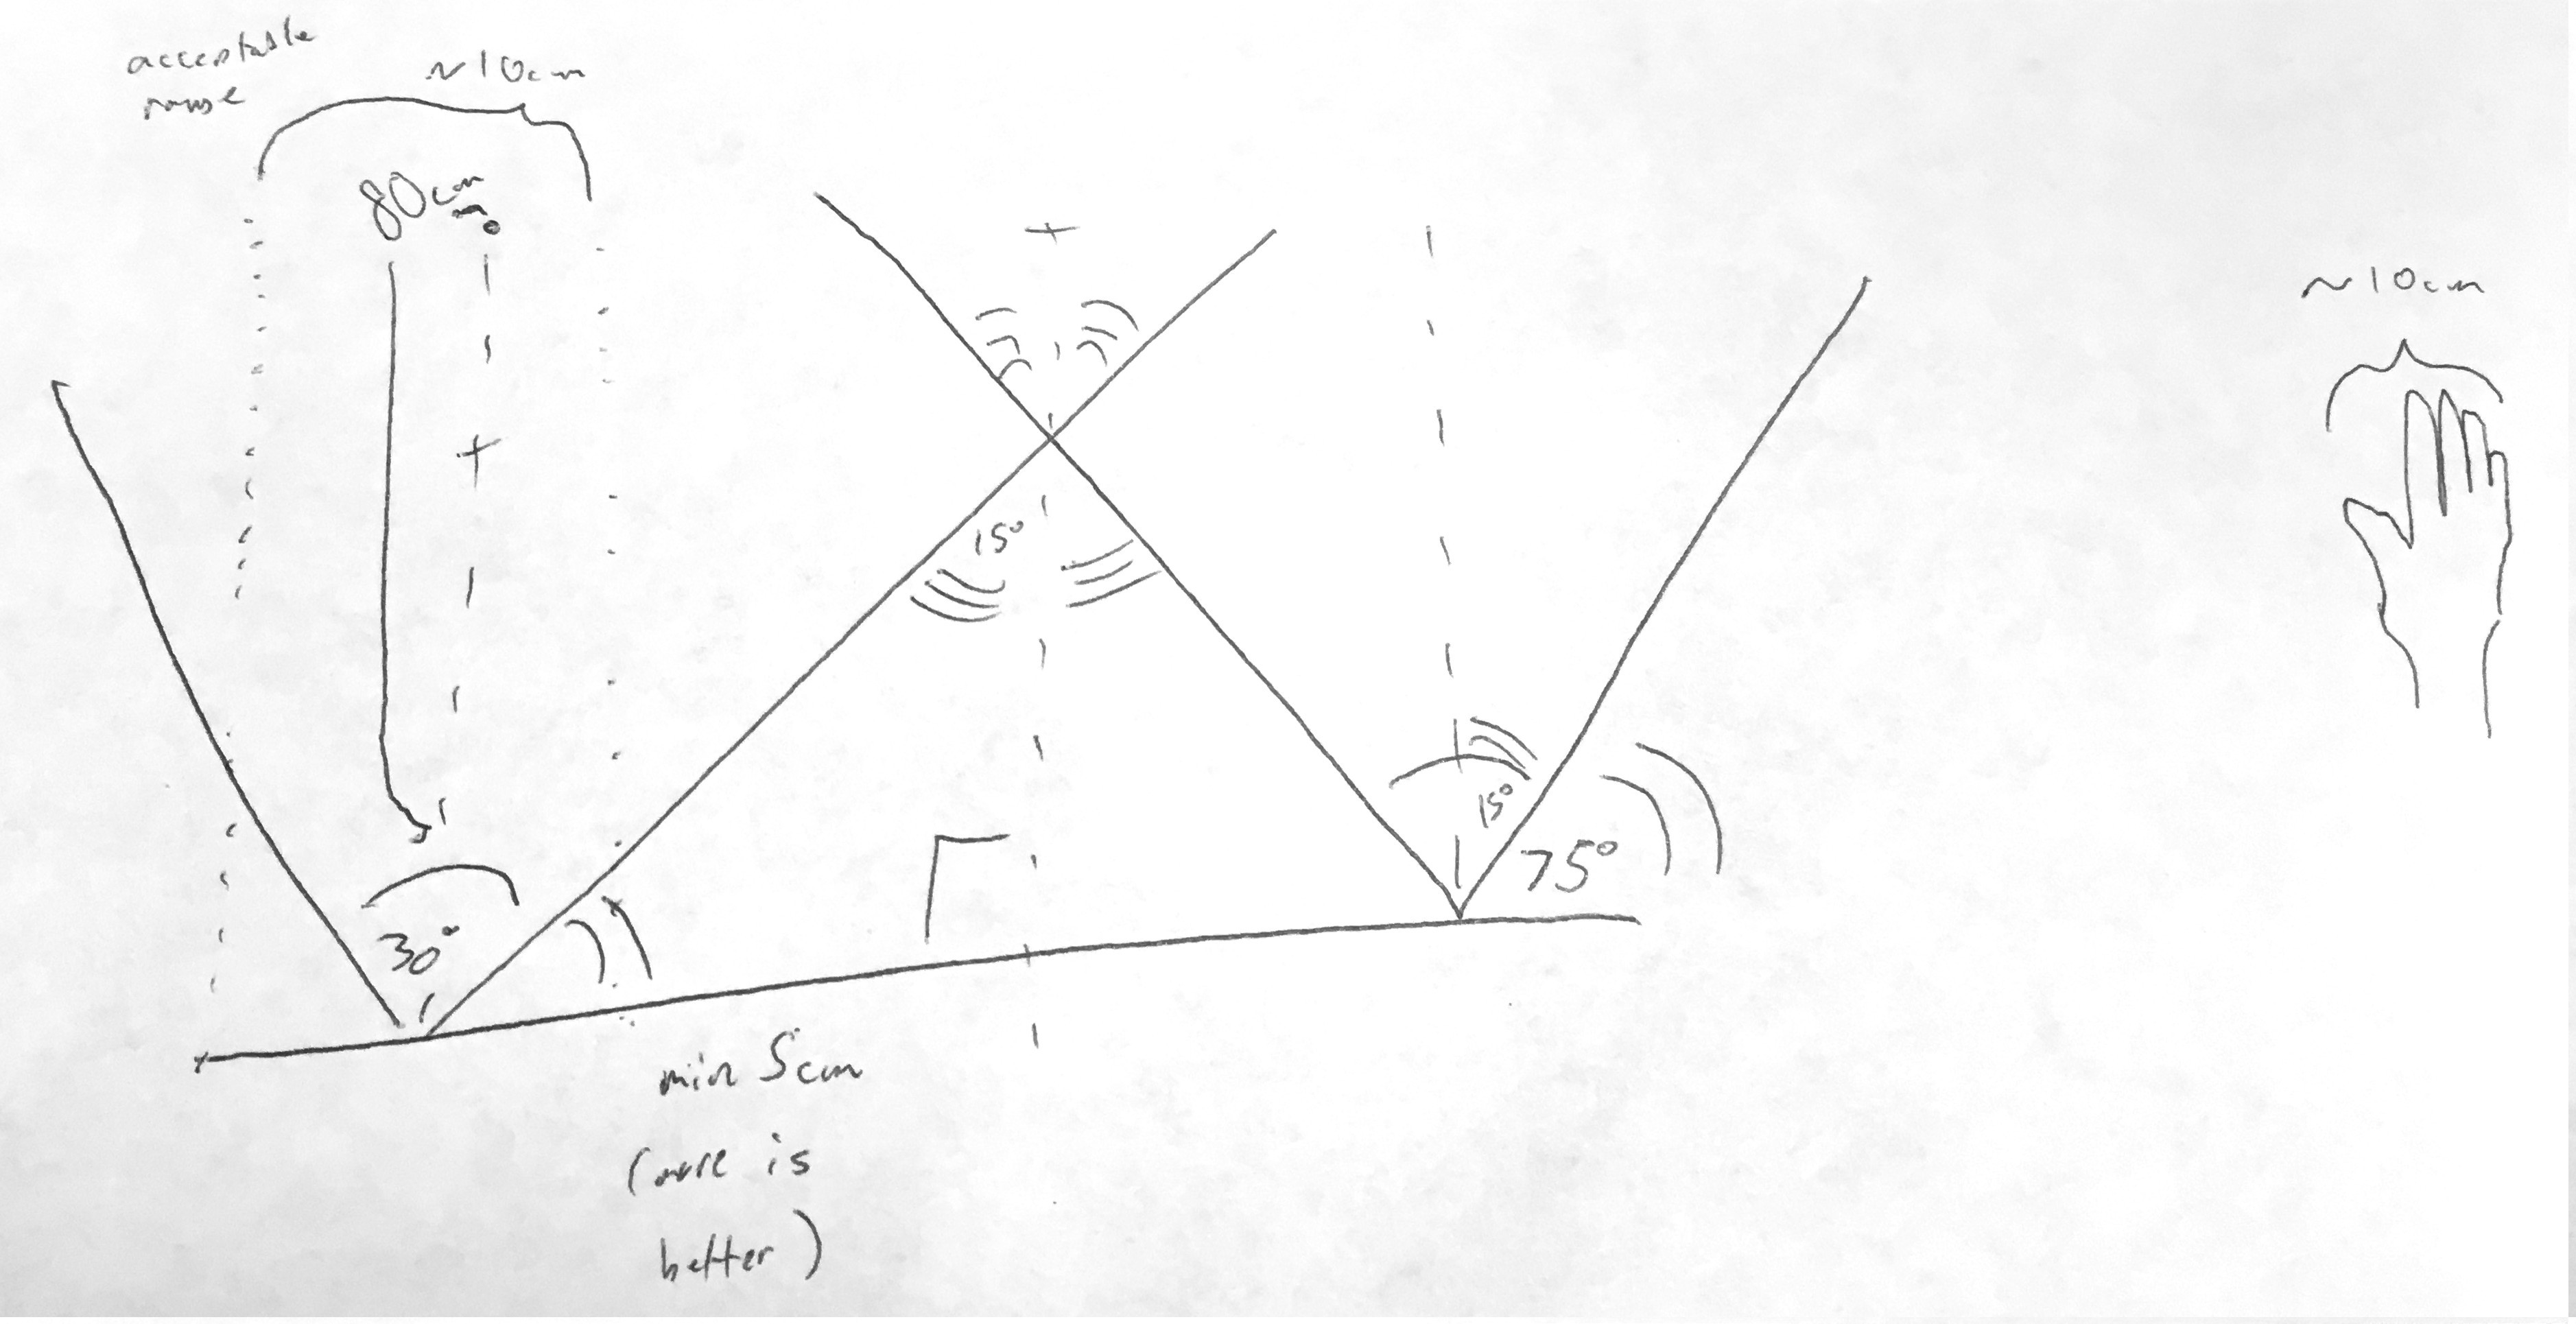 acceptable
range
~10cm
80cm
~10cm
15°
15°
75°
30°
min 5cm
(more is
better)